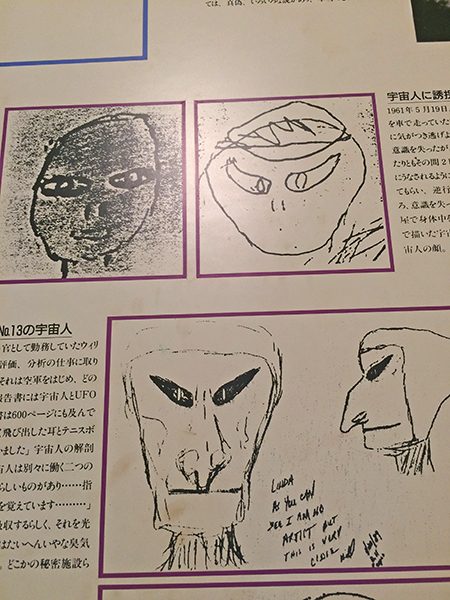 ては、真偽、いろいろな説があり、
宇宙人に誘拐
1961年5月19日
を車で走っていた
に気がつき逃げよ
意識を失ったが
たりともその間2
にうなされるように
てもらい、逆行
ろ、意識を失っ
屋で身体中を
で描いた宇宙
宙人の顔。
No.13の宇宙人
官として勤務していたウィリ
評価、分析の仕事に取り
それは空軍をはじめ、どの
報告書には宇宙人とUFO
書は600ページにも及んで
飛び出した耳とテニスボ
いました」宇宙人の解剖
宙人は別々に働く二つの
らしいものがあり……指
を覚えています………」
吸収するらしく、それを光
はたいへんいやな臭気
。どこかの秘密施設ら
LINDA
AS YOU CAN
SEE I AM NO
ARTIST BUT
THIS IS VERY
CLOSE